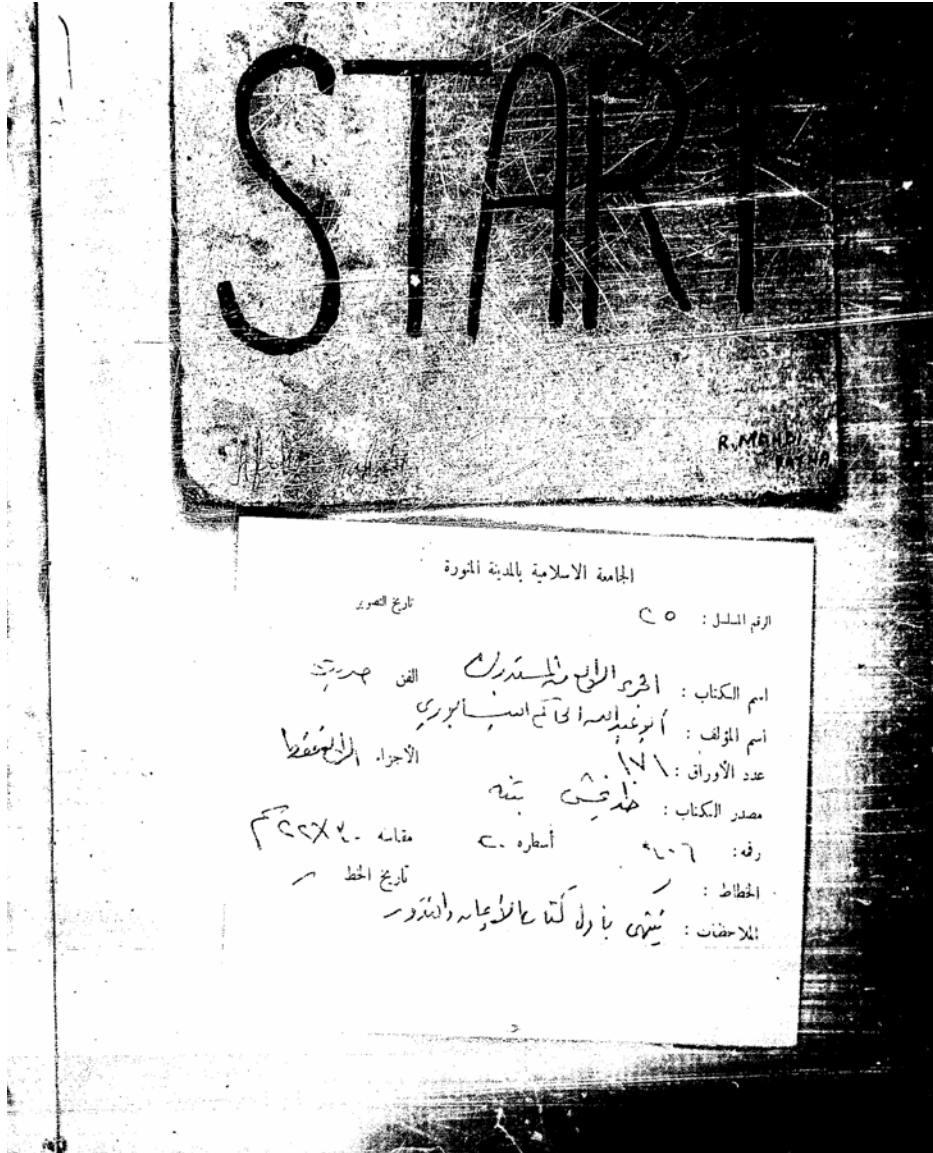 START
R. MAHDI
PATNA
الجامعة الاسلامية بالمدينة المنورة
تاريخ التصوير
الرقم المسلسل : ٢٥
اسم الكتاب : الجزء الرابع من المستدرك الفن حديث
اسم المؤلف : أبو عبد الله الحاكم النيسابوري
عدد الأوراق : ١٧١ الأجزاء الرابع فقط
مصدر الكتاب : خدابخش بتنه
رقمه : أسطره ٢٠ مقاسه ٣٠×٢٢ سم
الخطاط : تاريخ الخط
الملاحظات : ينتهي بأول كتاب الأيمان والنذور